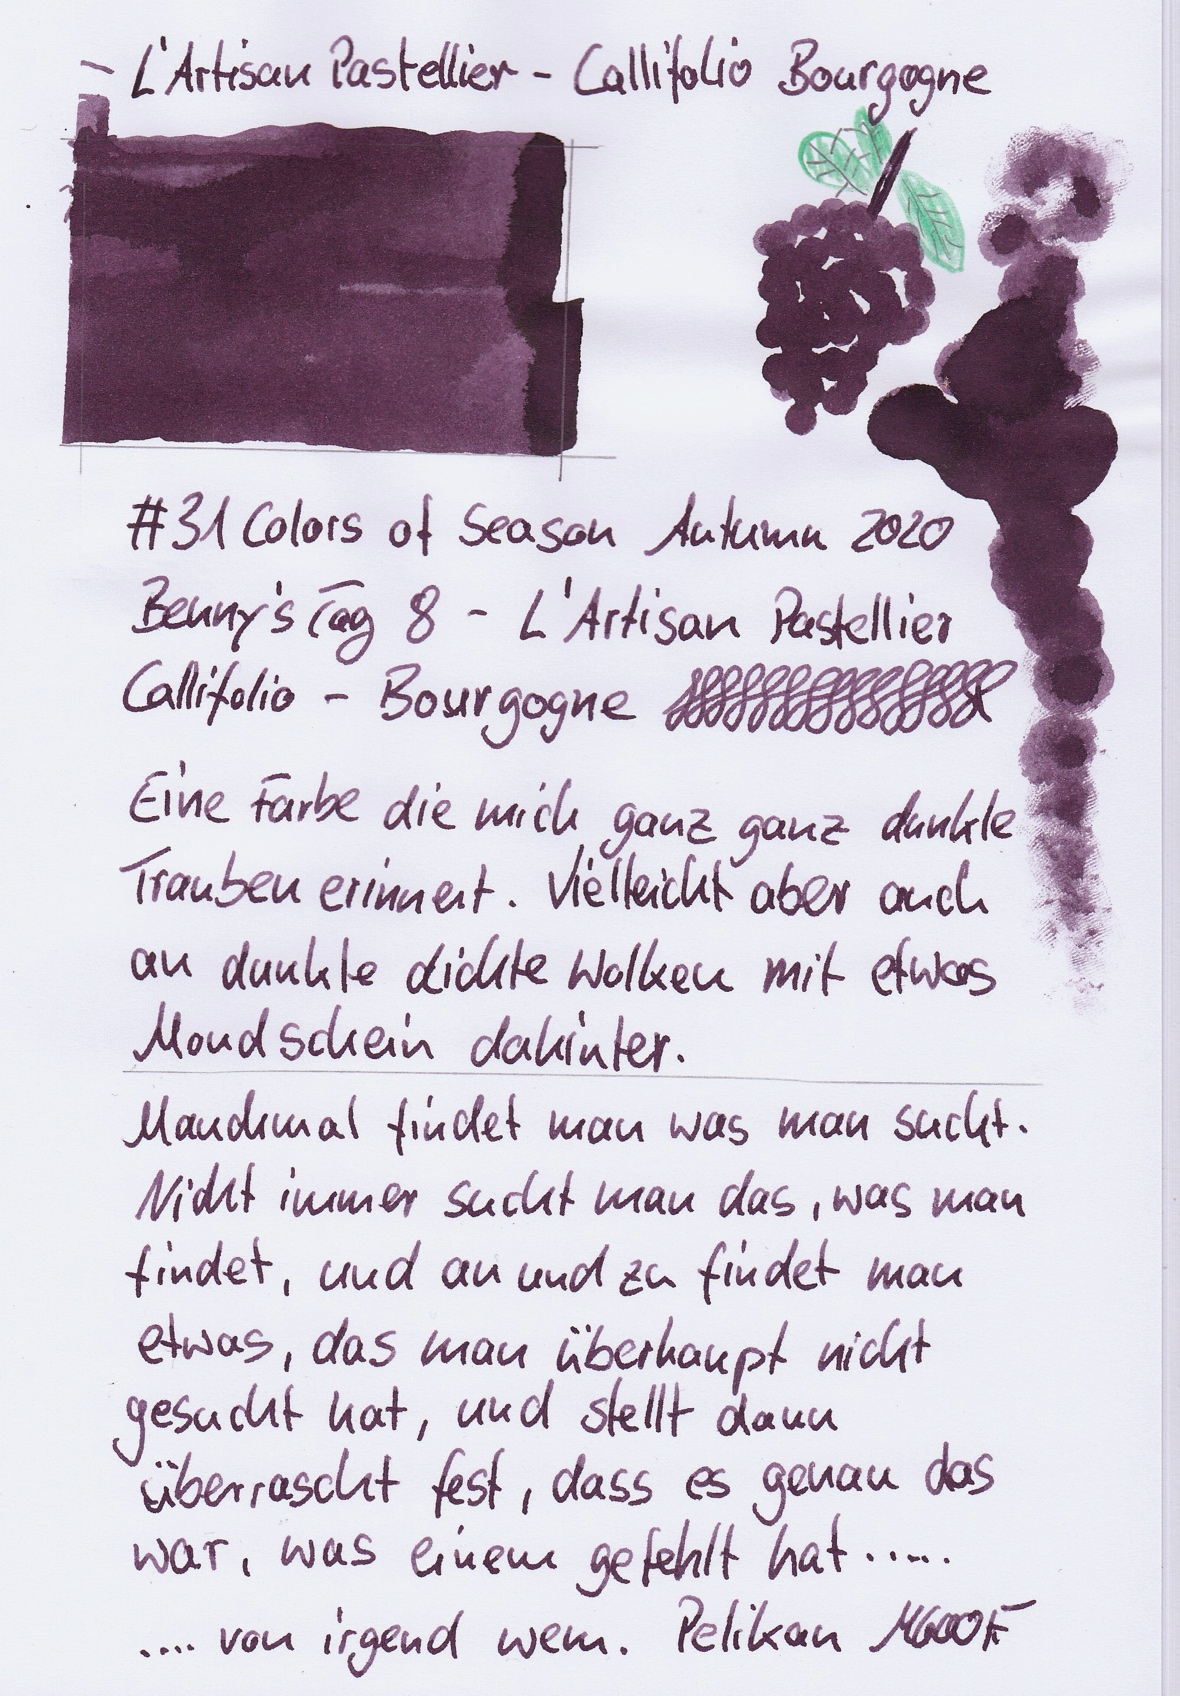 L'Artisan Pastellier - Callifolio Bourgogne
#31 Colors of Season Autumn 2020
Benny's Tag 8 - L'Artisan Pastellier
Callifolio - Bourgogne
Eine Farbe die mich ganz ganz dunkle
Trauben erinnert. Vielleicht aber auch
an dunkle dichte Wolken mit etwas
Mondschein dahinter.
Manchmal findet man was man sucht.
Nicht immer sucht man das, was man
findet, und an und zu findet man
etwas, das man überhaupt nicht
gesucht hat, und stellt dann
überrascht fest, dass es genau das
war, was einem gefehlt hat.....
.... von irgend wem. Pelikan M600F